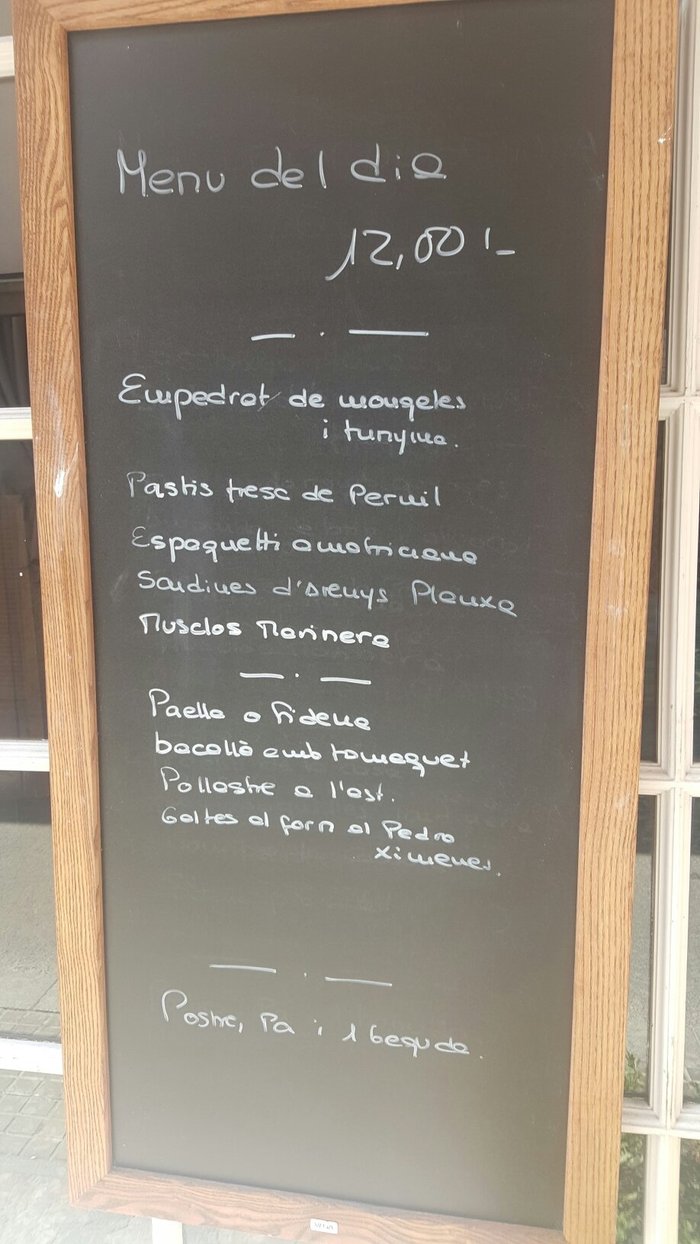 Menu del dia
12,00 '-
Empedrat de mongeles
i tunyina.
Pastis fresc de Pernil
Espaguetti amatriciana
Sardines d'Arenys Planxa
Musclos Marinera
Paella o Fideua
bacallà amb tomaquet
Pollastre a l'ast.
Galtes al forn al Pedro
Ximenes.
Postre, Pa i 1 beguda.